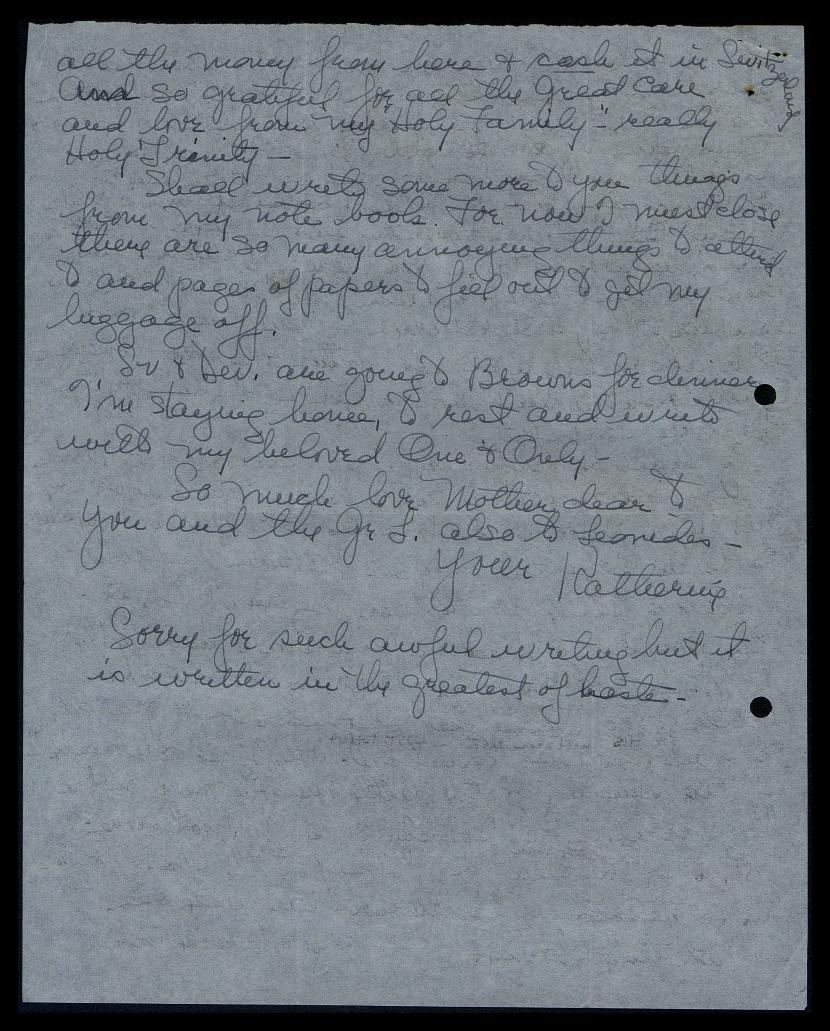 all the money from here & cash it in Switzerland
And so grateful for all the Great Care
and love from my "Holy Family" - really
Holy Trinity -
Shall write some more to you things
from my note book. For now I must close
there are so many annoying things to attend
to and pages of papers to fill out to get my
luggage off.
Sv & Dev. are going to Browns for dinner
I'm staying home, to rest and write
with my beloved One & Only -
So much love Mother dear to
you and the Gr S. also to Leonides -
Your Katherine
Sorry for such awful writing but it
is written in the greatest of haste -